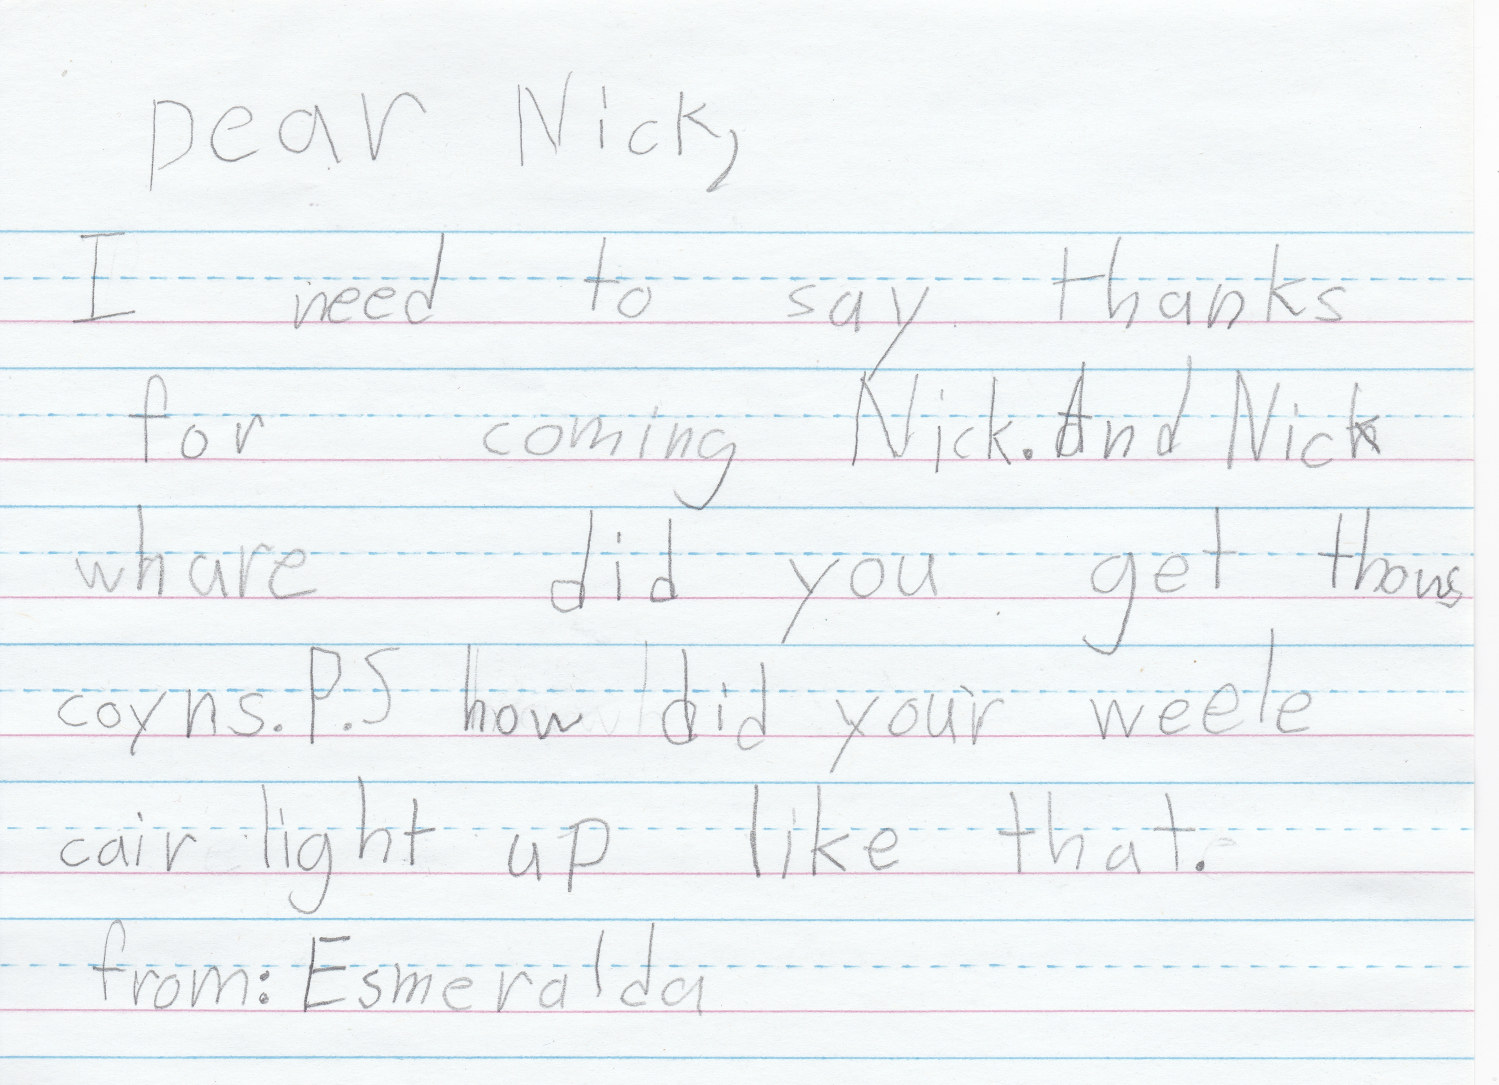 Dear Nick,
I need to say thanks
for coming Nick. And Nick
whare did you get thous
coyns. P.S how did your weele
cair light up like that.
from: Esmeralda